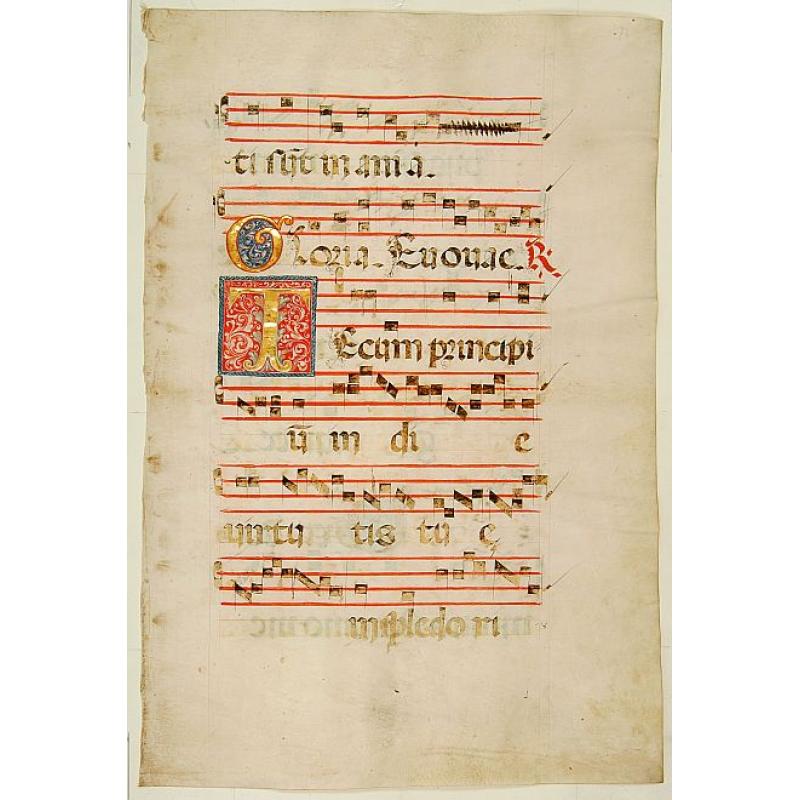 ti sūt in ania.
Gloria. Euouae. R
Tecum principi
ū in di e
uirtu tis tu ę
in splēdo ri